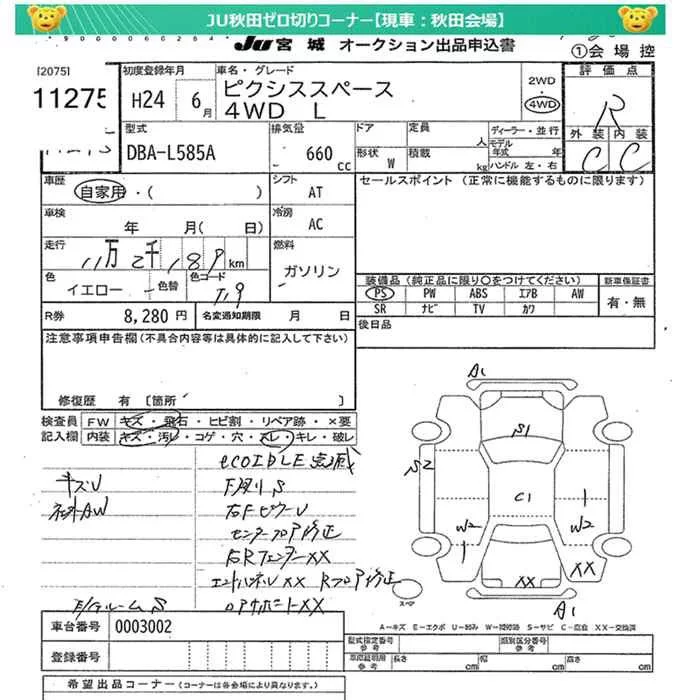 JU秋田ゼロ切りコーナー【現車：秋田会場】
JU 宮城 オークション出品申込書
①会場控
[2075]
11275
初度登録年月
H24 6月
車名・グレード
ピクシススペース
4WD L
2WD
4WD
評価点
R
外装 内装
C C
型式
DBA-L585A
排気量
660 cc
ドア
定員 人
形状 W
積載 kg
ディーラー・並行
モデル年式 年
ハンドル 左・右
車歴
自家用・( )
シフト
AT
セールスポイント (正常に機能するものに限ります)
車検
年 月( 日)
冷房
AC
走行
11万2千189km
燃料
ガソリン
色
イエロー
色替
色コード
T19
装備品 (純正品に限り○をつけてください)
PS PW ABS エアB AW
SR ナビ TV カワ
新車保証書
有・無
R券
8,280円
名変通知期限 月 日
後日品
注意事項申告欄(不具合内容等は具体的に記入して下さい)
修復歴 有 〔箇所 〕
検査員記入欄
FW キズ・飛石・ヒビ割・リペア跡・×要
内装 キズ・汚レ・コゲ・穴・スレ・キレ・破レ
ecoIDLE
キズU
下廻りS
右FピラーU
センターフロア修正
右RフェンダーXX
XX Rフロア修正
XX
S
A1
S1
S2
C1
W2
W2
XX
XX
A1
スペア
A－キズ E－エクボ U－凹み W－補修跡 S－サビ C－腐食 XX－交換済
車台番号
0003002
登録番号
型式指定番号 参考
類別区分番号 参考
車庫証明用 参考
長さ cm
幅 cm
高さ cm
希望出品コーナー (コーナーは各会場により異なります。)